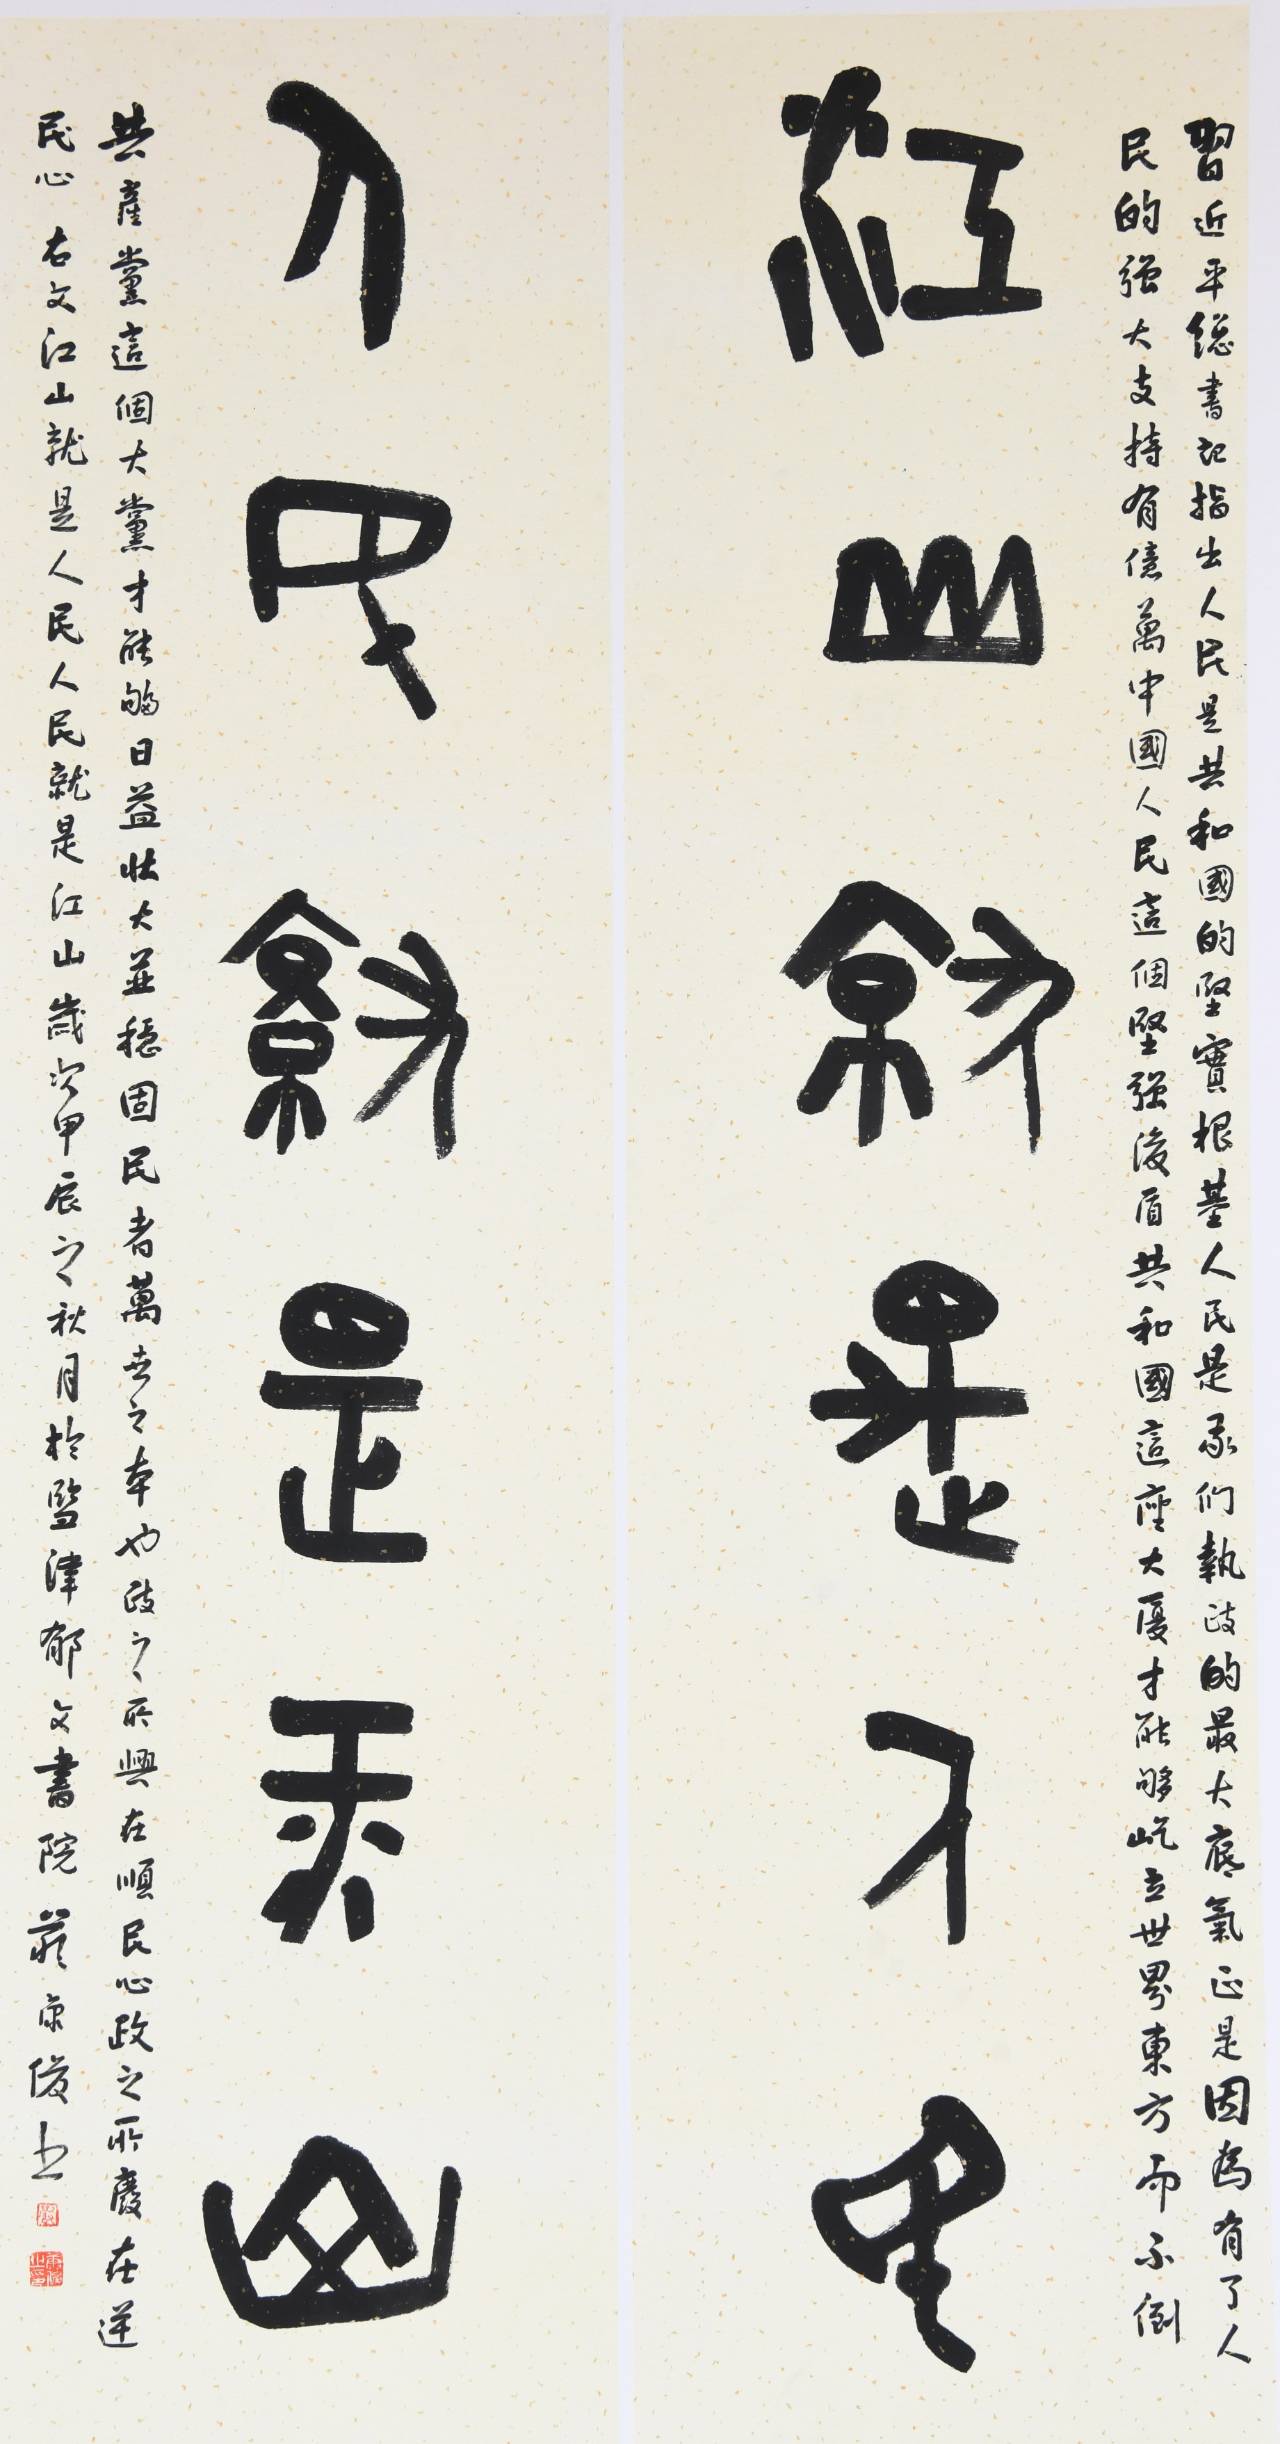 習近平總書記指出人民是共和國的堅實根基人民是我們執政的最大底氣正是因為有了人
民的强大支持有億萬中國人民這個堅强後盾共和國這座大厦才能够屹立世界東方而不倒
江山就是人民
人民就是江山
共產黨這個大黨才能够日益壯大並穩固民者萬世之本也政之所興在順民心政之所廢在逆
民心 右文江山就是人民人民就是江山歲次甲辰之秋月於監津郁文書院 嚴康俊書